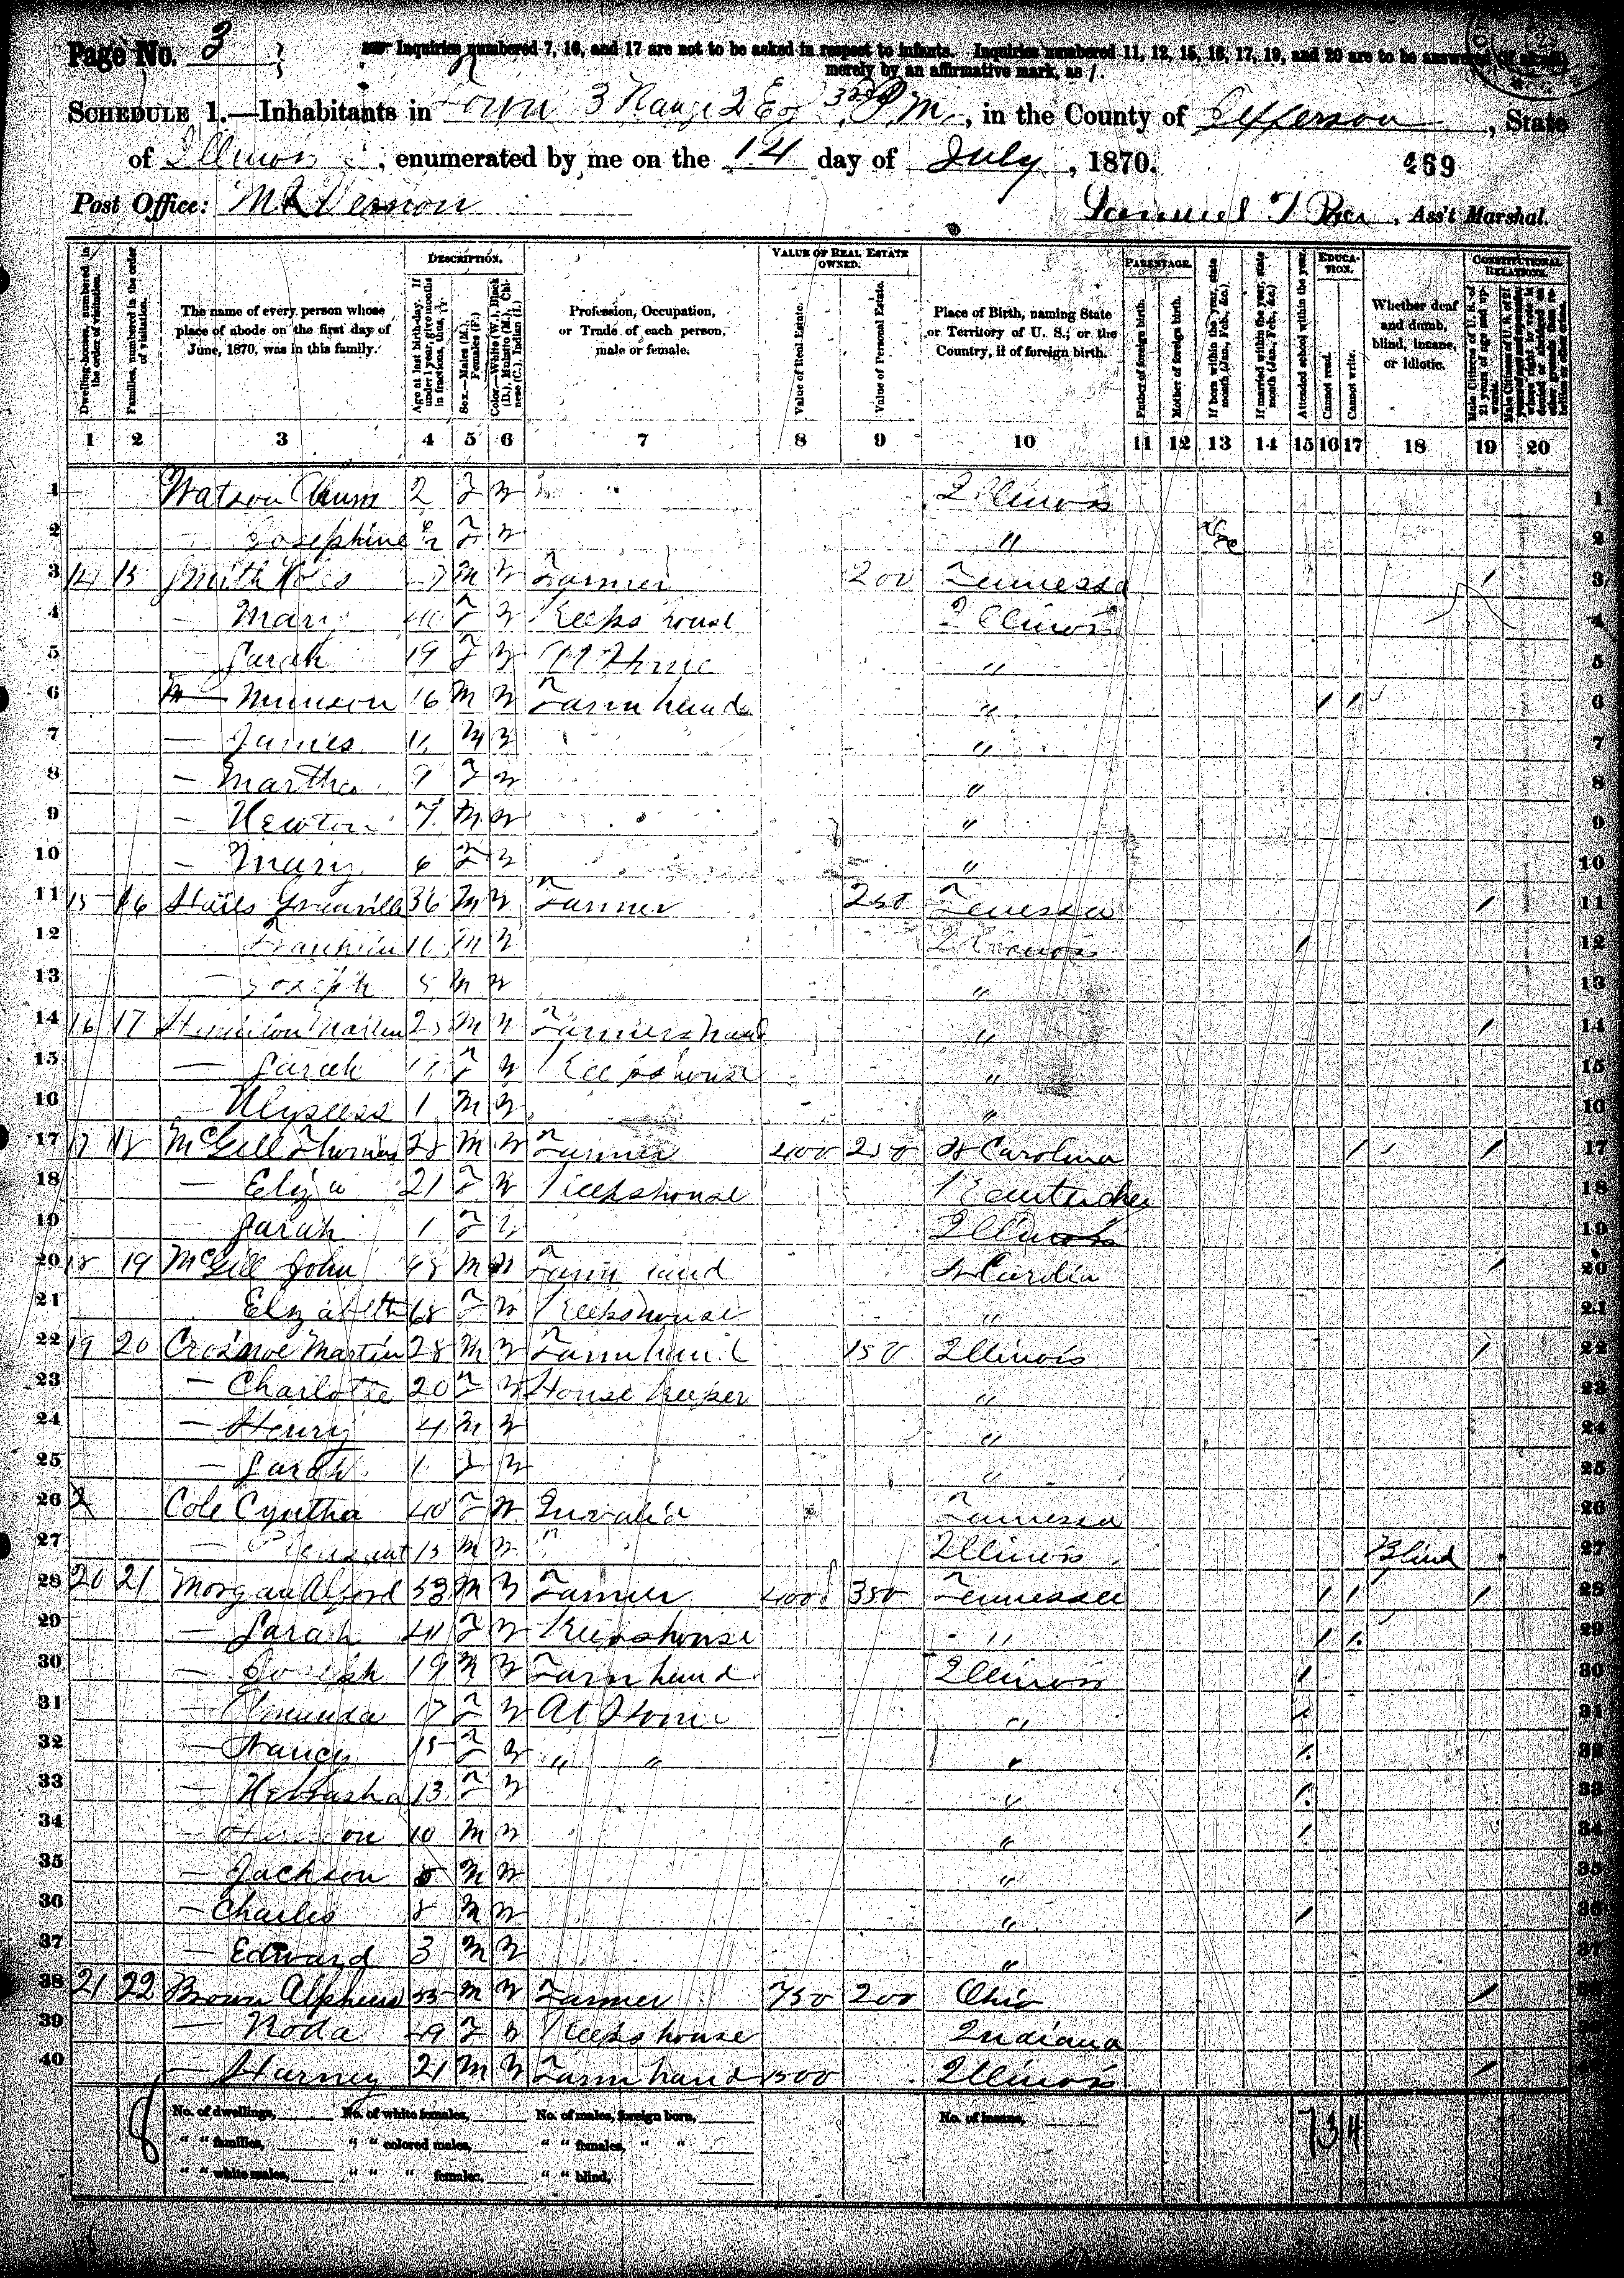 Page No. 3
Inquiries numbered 7, 16, and 17 are not to be asked in respect to infants. Inquiries numbered 11, 12, 15, 16, 17, 19, and 20 are to be answered
merely by an affirmative mark, as /.
SCHEDULE 1.—Inhabitants in Town 3 Range 2 E of 3rd P.M., in the County of Jefferson, State
of Illinois, enumerated by me on the 14 day of July, 1870. 469
Post Office: Mt Vernon Samuel T , Ass't Marshal.
DESCRIPTION. VALUE OF REAL ESTATE OWNED. PARENTAGE. EDUCATION. CONSTITUTIONAL RELATIONS.
Dwelling-houses, numbered in the order of visitation.
Families, numbered in the order of visitation.
The name of every person whose place of abode on the first day of June, 1870, was in this family.
Age at last birth-day. If under 1 year, give months in fractions, thus,
Sex.—Males (M.), Females (F.)
Color.—White (W.), Black (B.), Mulatto (M.), Chinese (C.), Indian (I.)
Profession, Occupation, or Trade of each person, male or female.
Value of Real Estate.
Value of Personal Estate.
Place of Birth, naming State or Territory of U. S.; or the Country, if of foreign birth.
Father of foreign birth.
Mother of foreign birth.
If born within the year, state month (Jan., Feb., &c.)
If married within the year, state month (Jan., Feb., &c.)
Attended school within the year.
Cannot read.
Cannot write.
Whether deaf and dumb, blind, insane, or idiotic.
Male Citizens of U. S. of 21 years of age and upwards.
1 2 3 4 5 6 7 8 9 10 11 12 13 14 15 16 17 18 19 20
1 Watson 2 F W Illinois 1
2 Josephine F W " 2
3 14 15 Smith M W Farmer 200 Tennessee / 3
4 Mary 40 F W Keeps house Illinois 4
5 Sarah 19 F W At Home " 5
6 — Munson 16 M W Farm hand " / / 6
7 — James 11 M W " 7
8 — Martha 9 F W " 8
9 — Newton 7 M W " 9
10 — Mary 6 F W " 10
11 15 16 Granville 36 M W Farmer 250 Tenessee / 11
12 Franklin 11 M W Illinois / 12
13 — Joseph 5 M W " 13
14 16 17 M W Farmers hand " / 14
15 — Sarah F W Keeps house " 15
16 — Ulyseess 1 M W " 16
17 17 18 McGill Thomas 28 M W Farmer 400 250 N Carolina / / 17
18 — Eliza 21 F W Keepshouse Kentuckey 18
19 — Sarah 1 F W Illinois 19
20 18 19 McGill John 68 M W Farm hand N Carolia / 20
21 Elizabeth 68 F W Keepshouse " 21
22 19 20 Crosnoe Martin 28 M W Farm hand 150 Illinois / 22
23 — Charlotte 20 F W House keeper " 23
24 — Henry 4 M W " 24
25 — Sarah 1 F W " 25
26 Cole Cyntha 40 F W Invalid Tennessa 26
27 — 15 M W " Illinois Blind 27
28 20 21 Morgan Alford 53 M W Farmer 400 350 Tennessee / / / 28
29 — Sarah 41 F W Keepshouse " / / 29
30 — Joseph 19 M W Farm hand Illinois / 30
31 — 17 F W At Home " / 31
32 — Nancy 15 F W " " " / 32
33 — Nebraska 13 F W " / 33
34 — 10 M W " / 34
35 — Jackson M W " 35
36 — Charles 8 M W " / 36
37 — Edward 3 M W " 37
38 21 22 Brown Alpheus 55 M W Farmer 750 200 Ohio /
39 — Roda 49 F W Keeps house Indiana
40 — Harney 21 M W Farm hand 1500 Illinois /
8 No. of dwellings, No. of white females, No. of males, foreign born, No. of insane, 7 3 4
" " families, " " colored males, " " females, " "
" " white males, " " " females, " " blind,